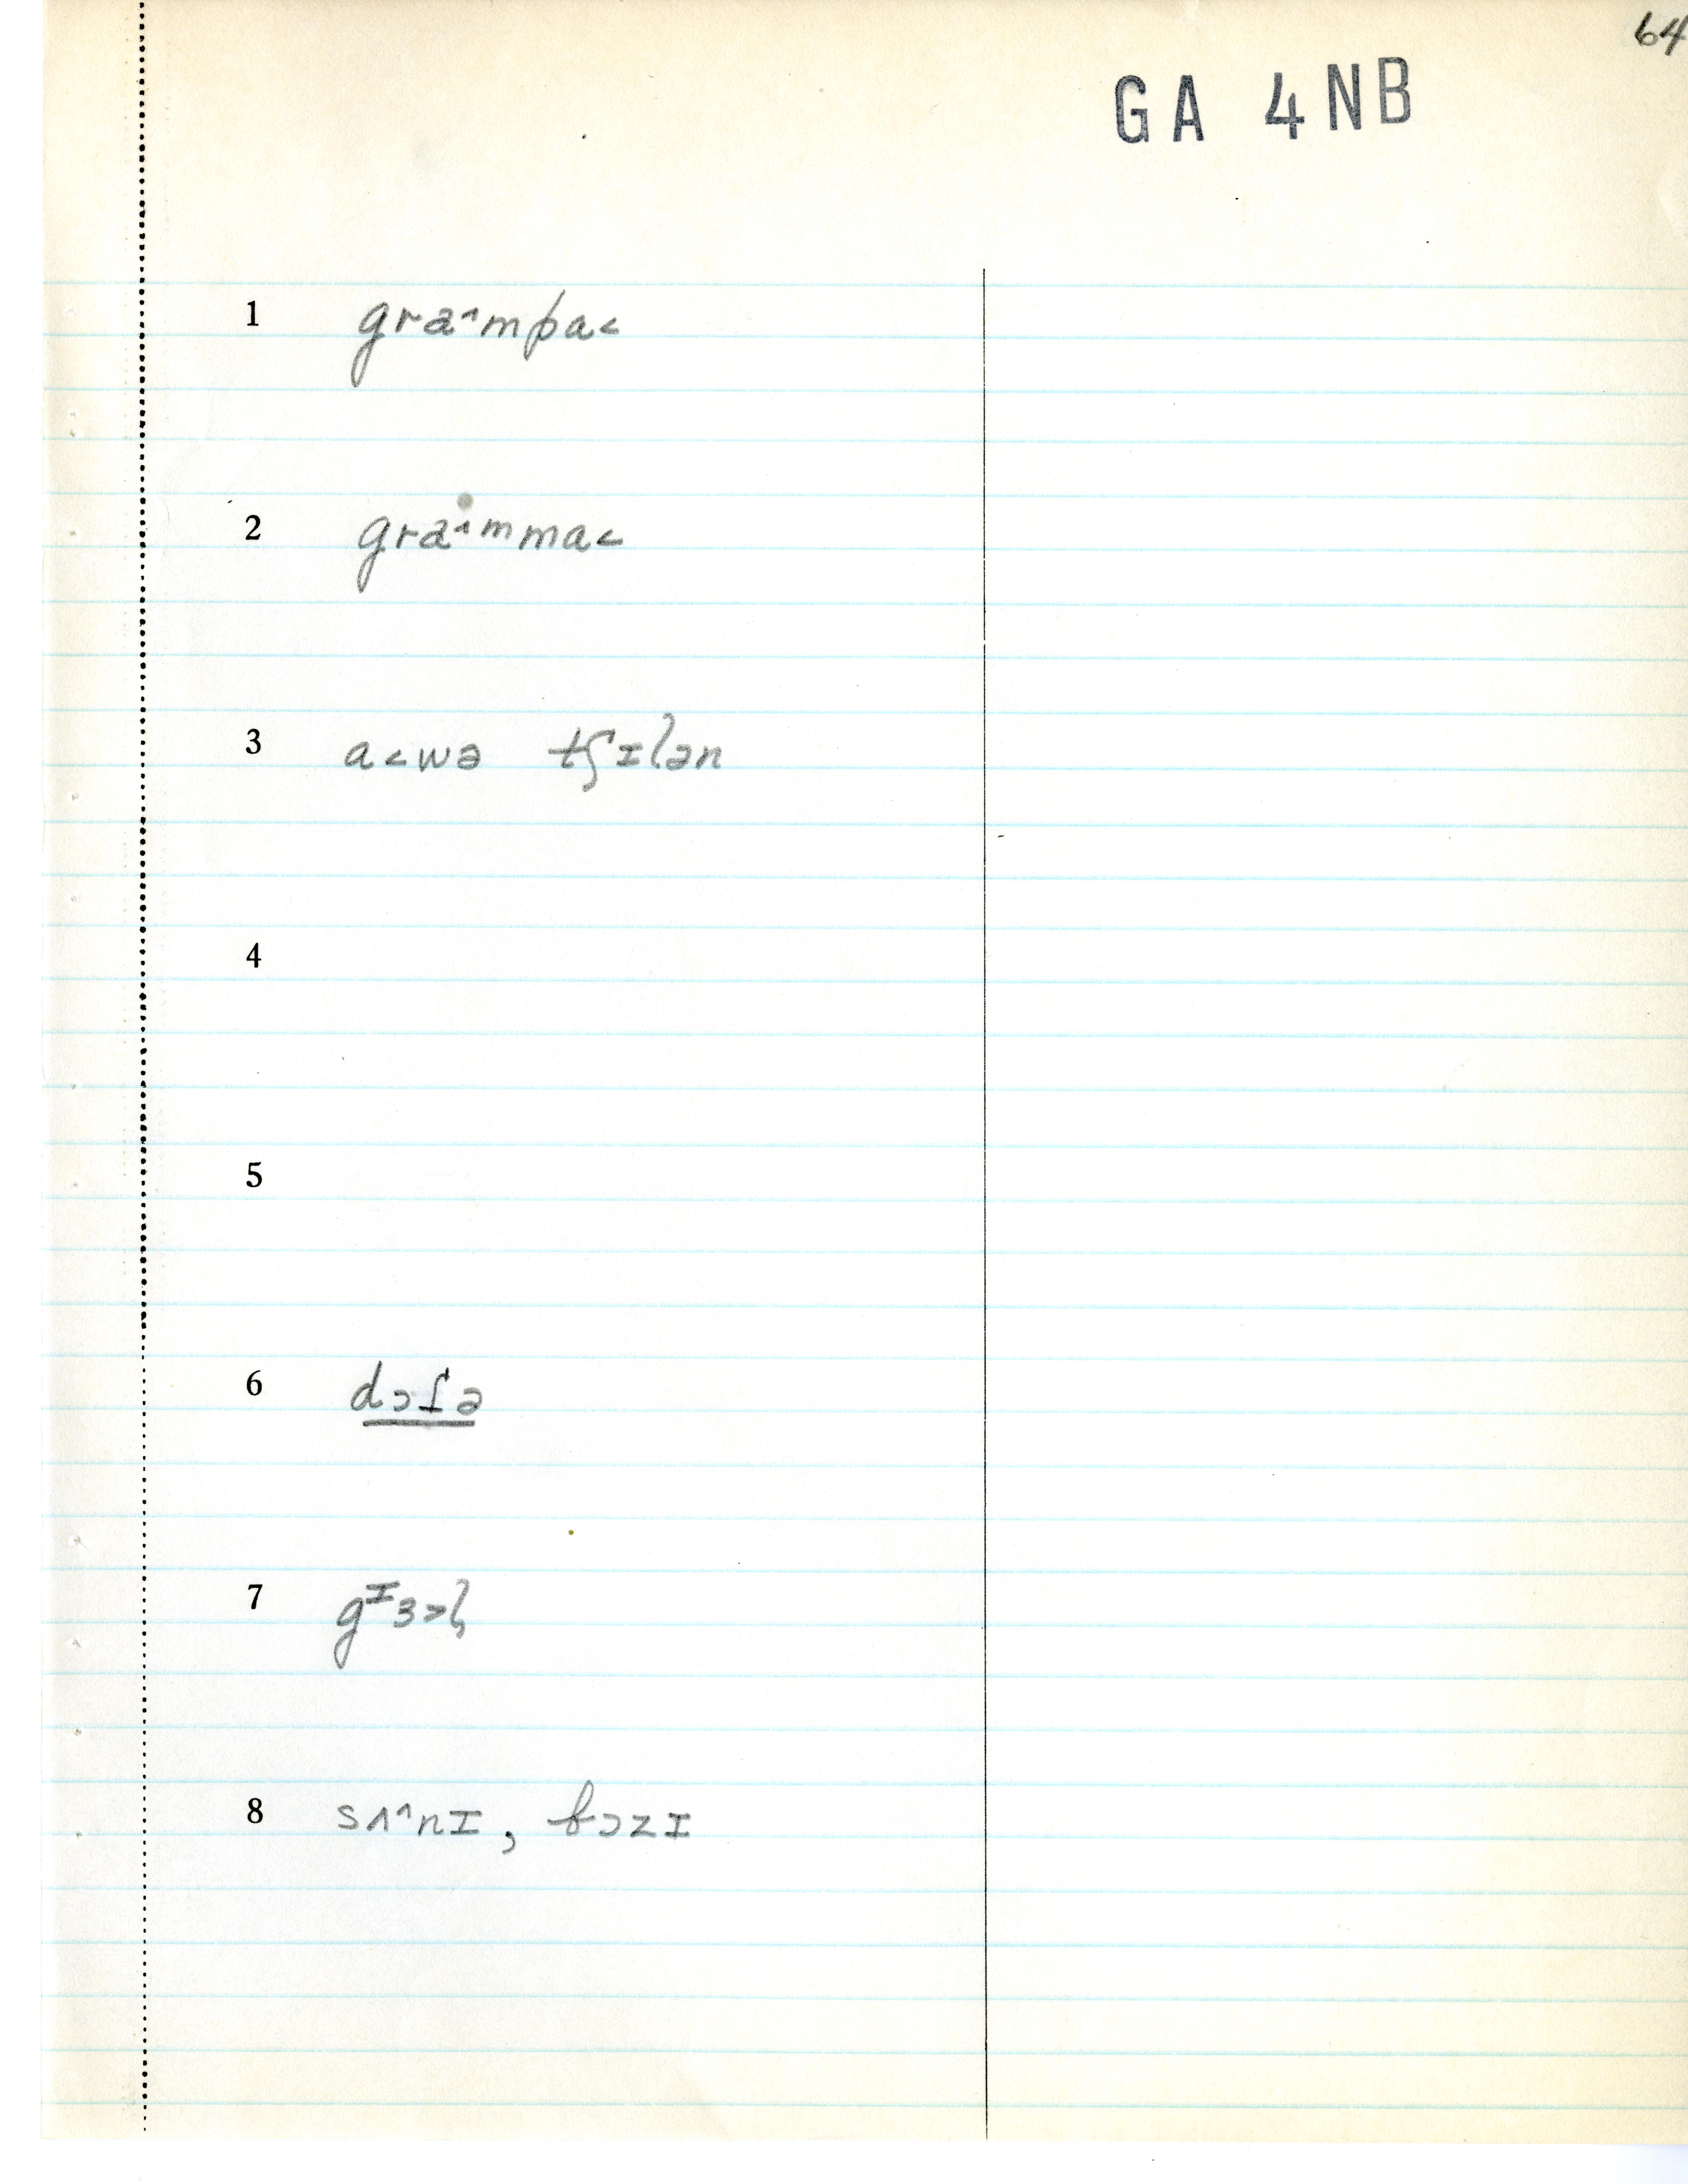 64
GA 4NB
1 gra^mpa<
2 gra^mma<
3 a<wə tʃɪlən
4
5
6 dɔtə
7 gᶦɜ>l̥
8 sʌ^nɪ, bɔzɪ